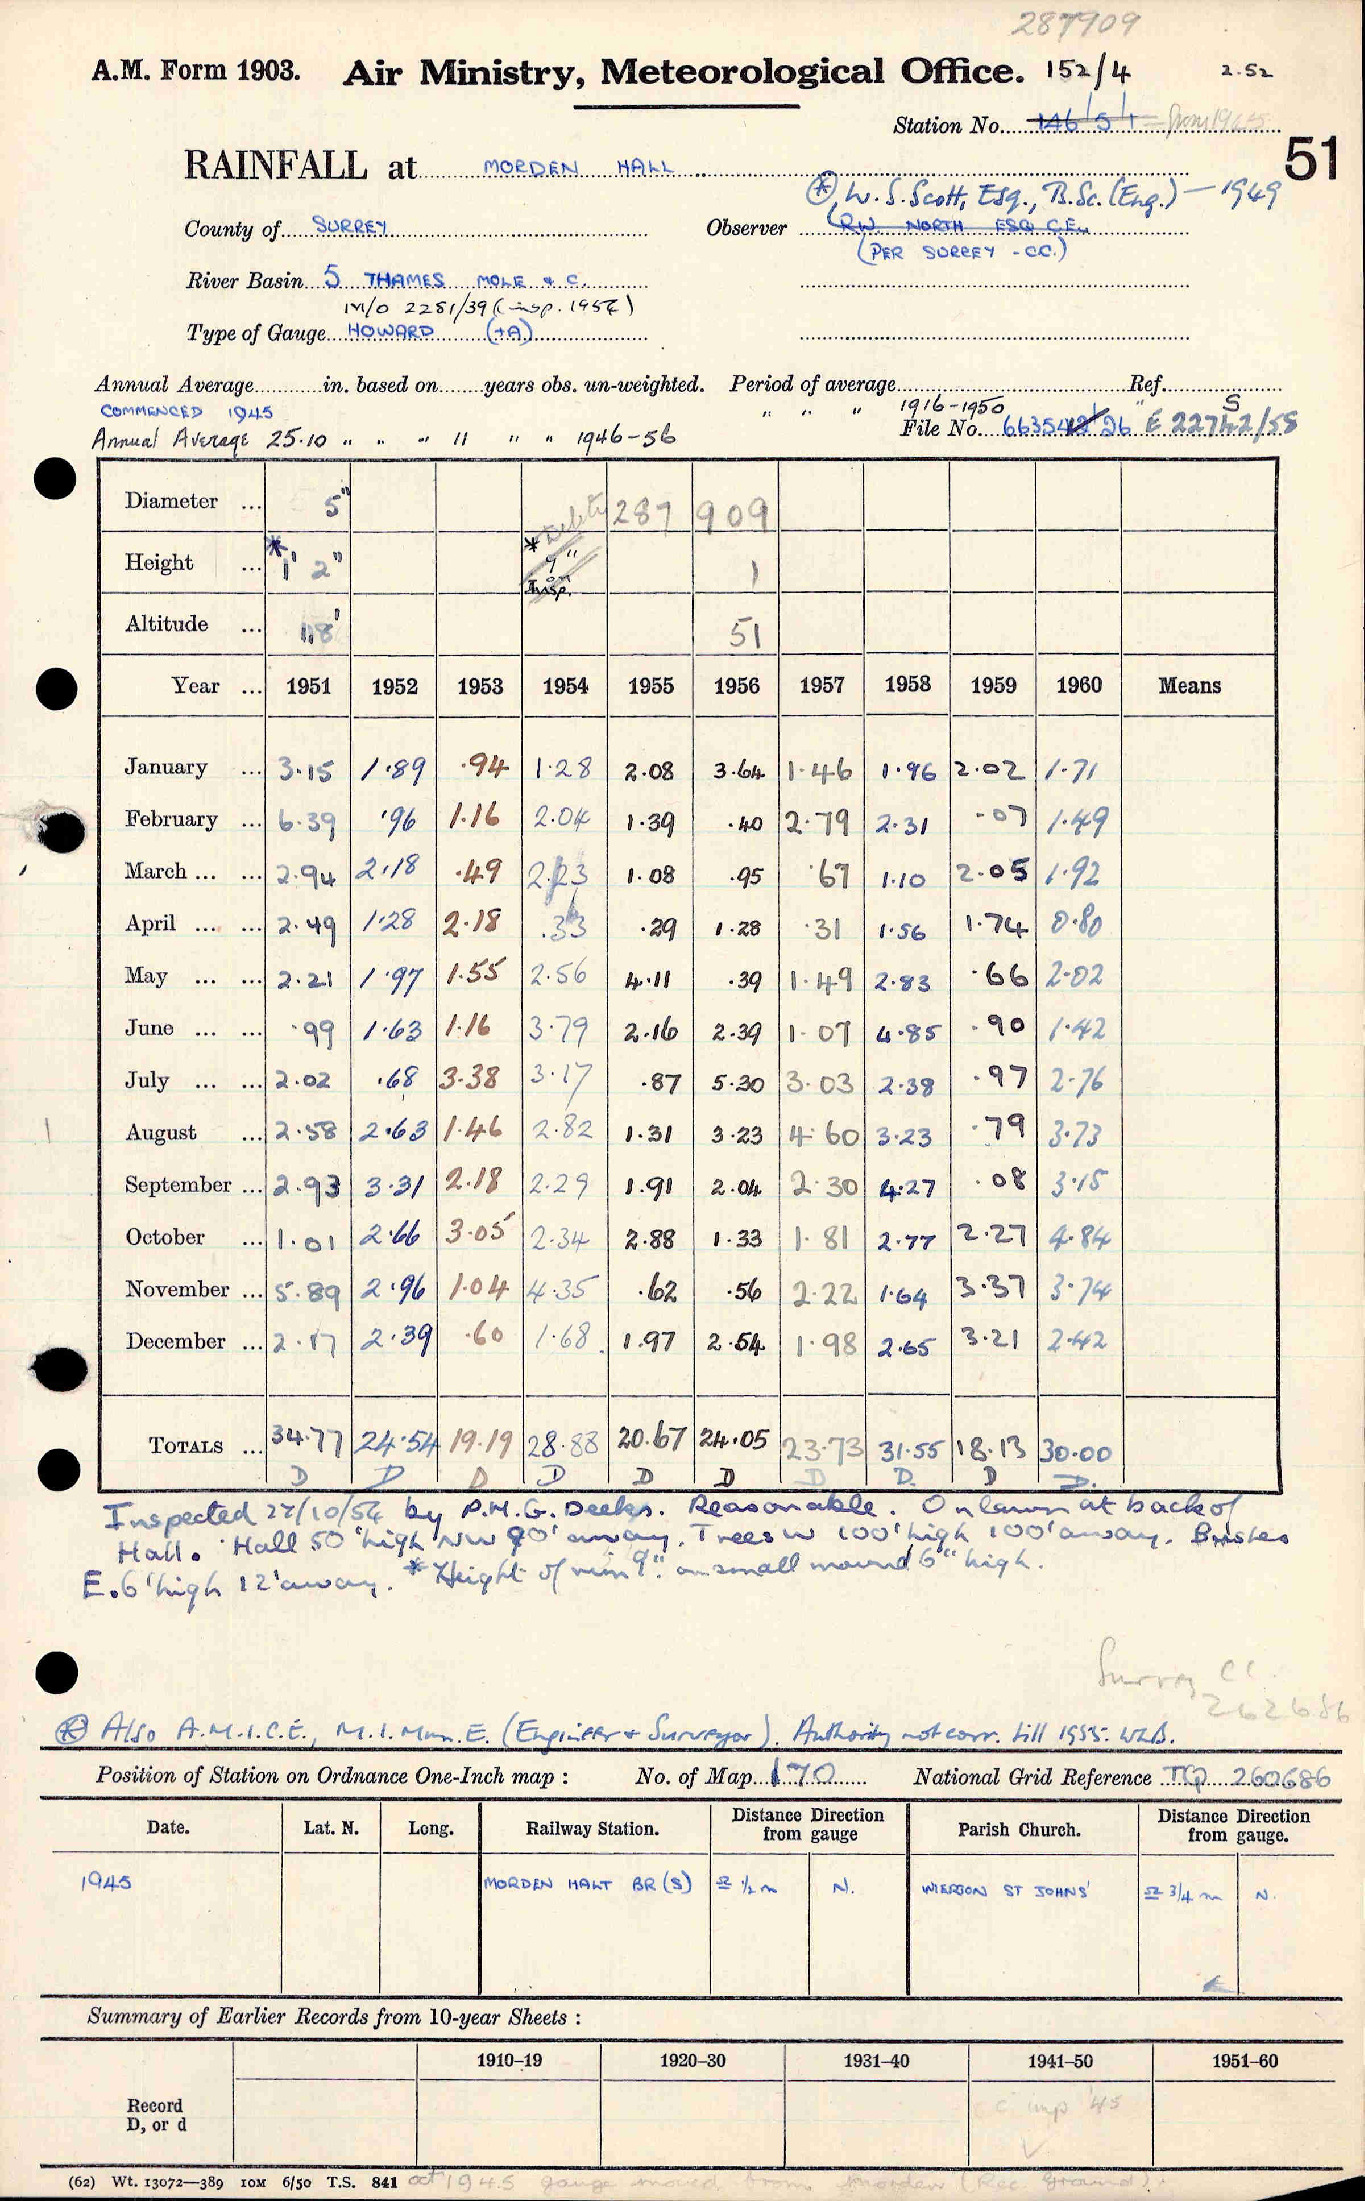 287909
A.M. Form 1903. Air Ministry, Meteorological Office. 152/4 2.52
Station No. 146/5/1 = from 1945
51
RAINFALL at MORDEN HALL
⊛ W. S. Scott, Esq., B.Sc. (Eng.) — 1949
County of SURREY Observer (R.W. NORTH ESQ C.E.
(PER SURREY - CC.)
River Basin 5 THAMES MOLE & C.
M/O 2281/39 (insp. 1954)
Type of Gauge HOWARD (+A)
Annual Average in. based on years obs. un-weighted. Period of average Ref.
COMMENCED 1945 " " " 1916-1950 " S
Annual Average 25.10 " " " 11 " " " 1946-56 File No. 663542/26 E 22742/55
Diameter ... 5" Delete 287 909
Height ... *1' 2" * 9" on Insp. 1
Altitude ... 118' 51
Year ... 1951 1952 1953 1954 1955 1956 1957 1958 1959 1960 Means
January ... 3.15 1.89 .94 1.28 2.08 3.64 1.46 1.96 2.02 1.71
February ... 6.39 .96 1.16 2.04 1.39 .40 2.79 2.31 .07 1.49
March ... ... 2.94 2.18 .49 2.23 1.08 .95 .67 1.10 2.05 1.92
April ... ... 2.49 1.28 2.18 .33 .29 1.28 .31 1.56 1.74 0.80
May ... ... 2.21 1.97 1.55 2.56 4.11 .39 1.49 2.83 .66 2.02
June ... ... .99 1.63 1.16 3.79 2.16 2.39 1.07 4.85 .90 1.42
July ... ... 2.02 .68 3.38 3.17 .87 5.30 3.03 2.38 .97 2.76
August ... 2.58 2.63 1.46 2.82 1.31 3.23 4.60 3.23 .79 3.73
September ... 2.93 3.31 2.18 2.29 1.91 2.04 2.30 4.27 .08 3.15
October ... 1.01 2.66 3.05 2.34 2.88 1.33 1.81 2.77 2.27 4.84
November ... 5.89 2.96 1.04 4.35 .62 .56 2.22 1.64 3.37 3.74
December ... 2.17 2.39 .60 1.68 1.97 2.54 1.98 2.65 3.21 2.42
TOTALS ... 34.77 24.54 19.19 28.88 20.67 24.05 23.73 31.55 18.13 30.00
D D D D D D D D. D D.
Inspected 27/10/54 by P.H.G. Deeks. Reasonable. On lawn at back of
Hall. Hall 50' high NW 90' away. Trees W 100' high 100' away. Bushes
E. 6' high 12' away. * Height of rim 9". on small mound 6" high.
Surrey CC
262686
⊛ Also A.M.I.C.E., M.I.Mun.E. (Engineer & Surveyor). Authority not corr. till 1955. WLB.
Position of Station on Ordnance One-Inch map : No. of Map 170 National Grid Reference TQ 260686
Date. Lat. N. Long. Railway Station. Distance Direction from gauge Parish Church. Distance Direction from gauge.
1945 MORDEN HALT BR (S) ≏ 1/2 m N. ST JOHNS ≏ 3/4 m N.
Summary of Earlier Records from 10-year Sheets :
1910–19 1920–30 1931–40 1941–50 1951–60
Record
D, or d
c imp '45
(62) Wt. 13072—389 10M 6/50 T.S. 841 Oct 1945 gauge moved from Morden (Rec. Ground).